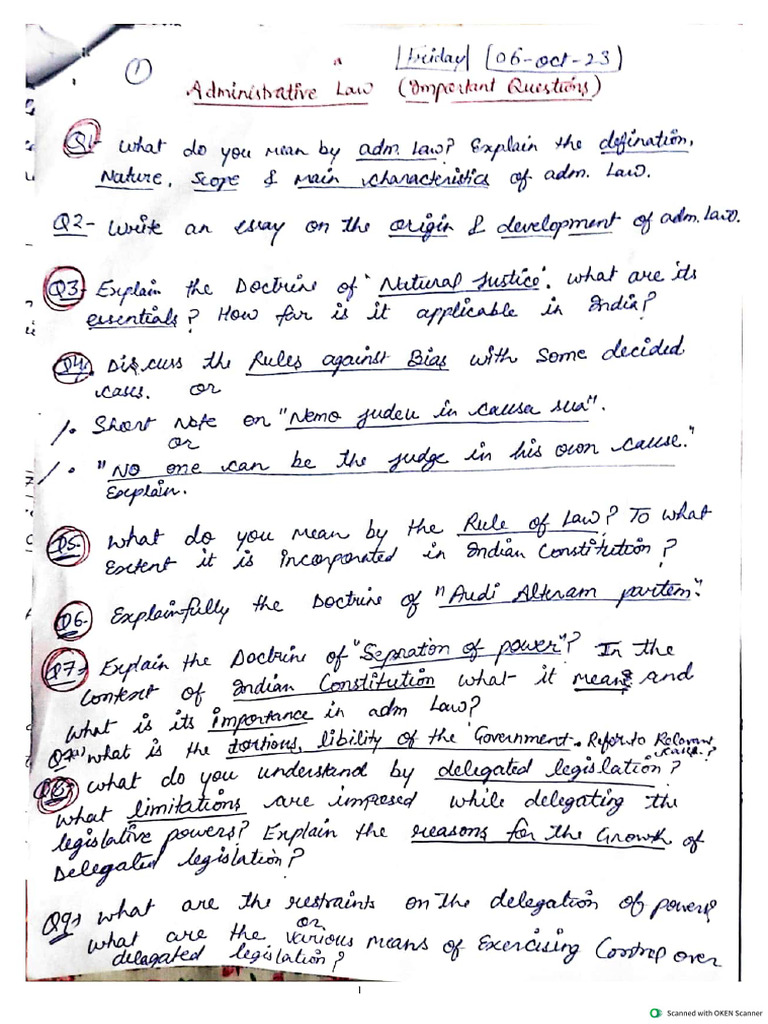 1
Friday 06-oct-23
Administrative Law (Important Questions)
Q1- What do you mean by adm. Law? Explain the defination,
Nature, Scope & main characteristics of adm. Law.
Q2- Write an essay on the origin & development of adm. Law.
Q3- Explain the Doctrine of "Natural Justice". What are its
essentials? How far is it applicable in India?
Q4. Discuss the Rules against Bias with some decided
cases. or
1. Short Note on "Nemo Judeu in causa sua".
or
1. "No one can be the judge in his own cause."
Explain.
Q5. What do you mean by the Rule of Law? To what
Extent it is incorporated in Indian Constitution?
Q6. Explain fully the Doctrine of "Audi Alteram partem".
Q7- Explain the Doctrine of "Sepration of power"? In the
context of Indian Constitution what it means and
what is its importance in adm Law?
Q7 what is the tortious libility of the Government. Refer to Relevant
cases.?
Q8- what do you understand by delegated legislation?
What limitations are imposed while delegating the
legislative powers? Explain the reasons for the Growth of
Delegated legislation?
Q9- what are the restraints on the delegation of power?
or
what are the various means of Exercising Control over
delagated legislation?
1
Scanned with OKEN Scanner